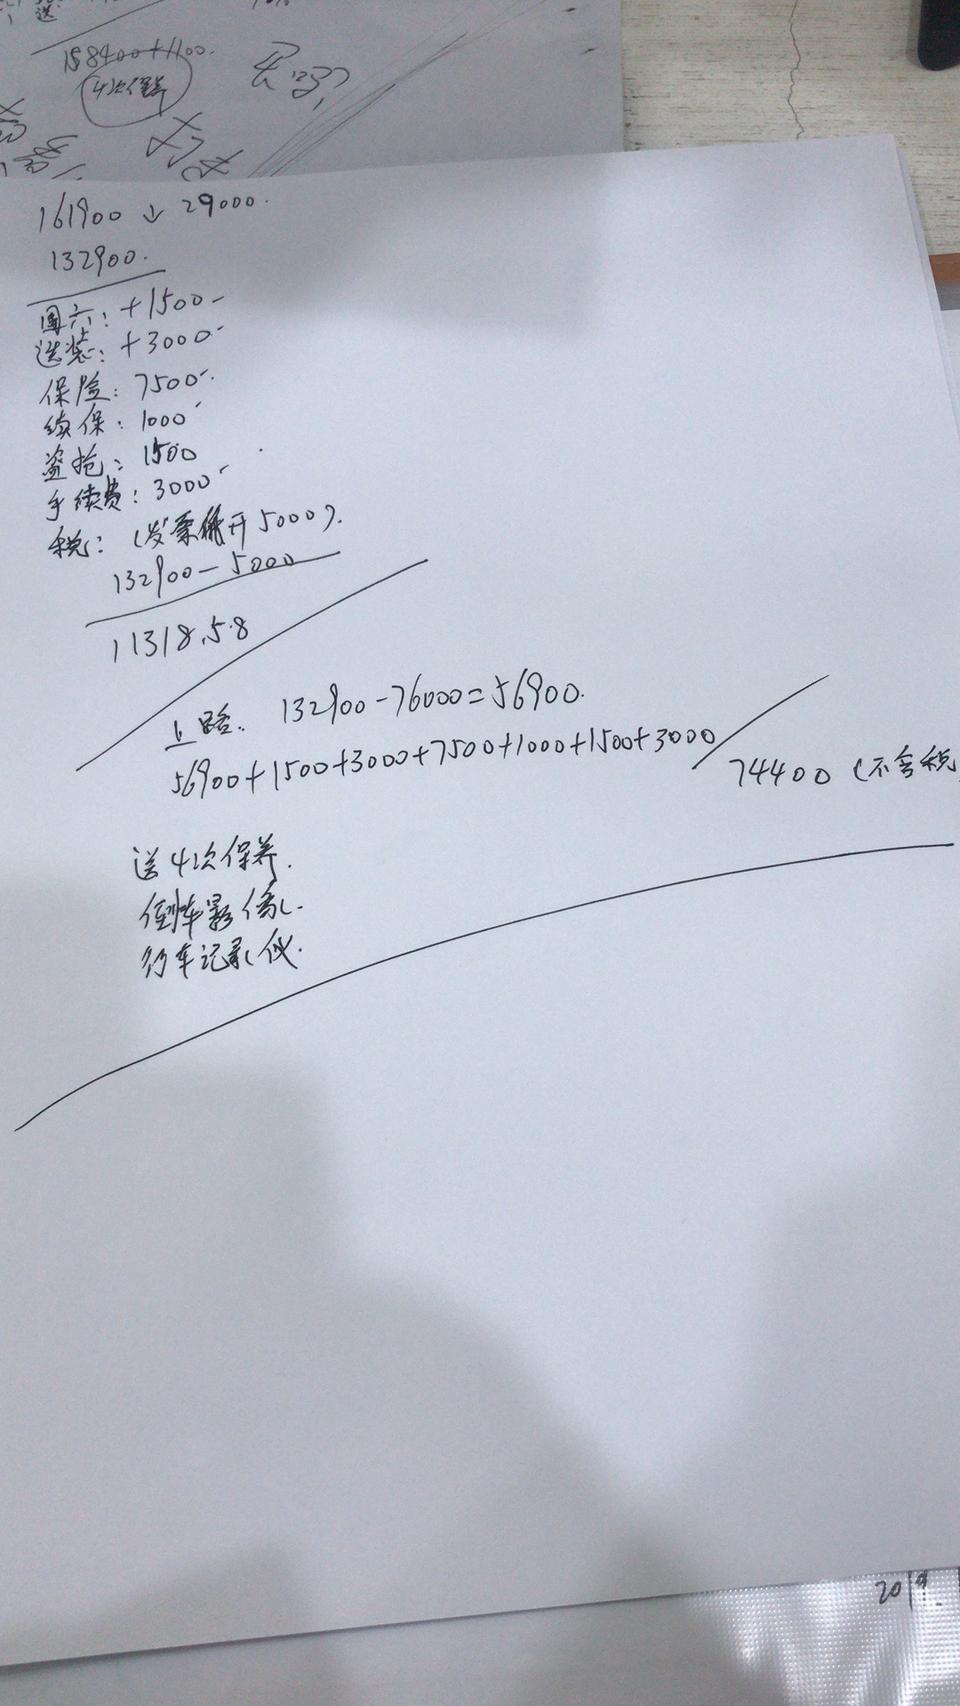 送
158400+1100.
4次保养
161900 ↓ 29000.
132900.
国六: +1500
选装: +3000
保险: 7500
续保: 1000
盗抢: 1500
手续费: 3000
税: (发票低开5000).
132900-5000
11318.58
上路. 132900-76000=56900.
56900+1500+3000+7500+1000+1500+3000
74400 (不含税
送4次保养.
倒车影像.
行车记录仪.